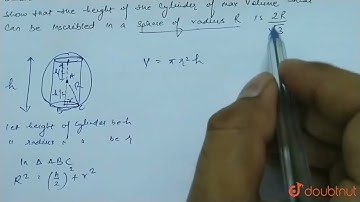 Show that the height of the Cylinder of max Volume that
Can be Inscribed in a Sphere of radius R is 2R/√3
h
h/2
A
R
h/2
B
r
C
V = πr²h
let height of cylinder be h
" radius " " be r
In Δ ABC
R² = (h/2)² + r²
doubtnut